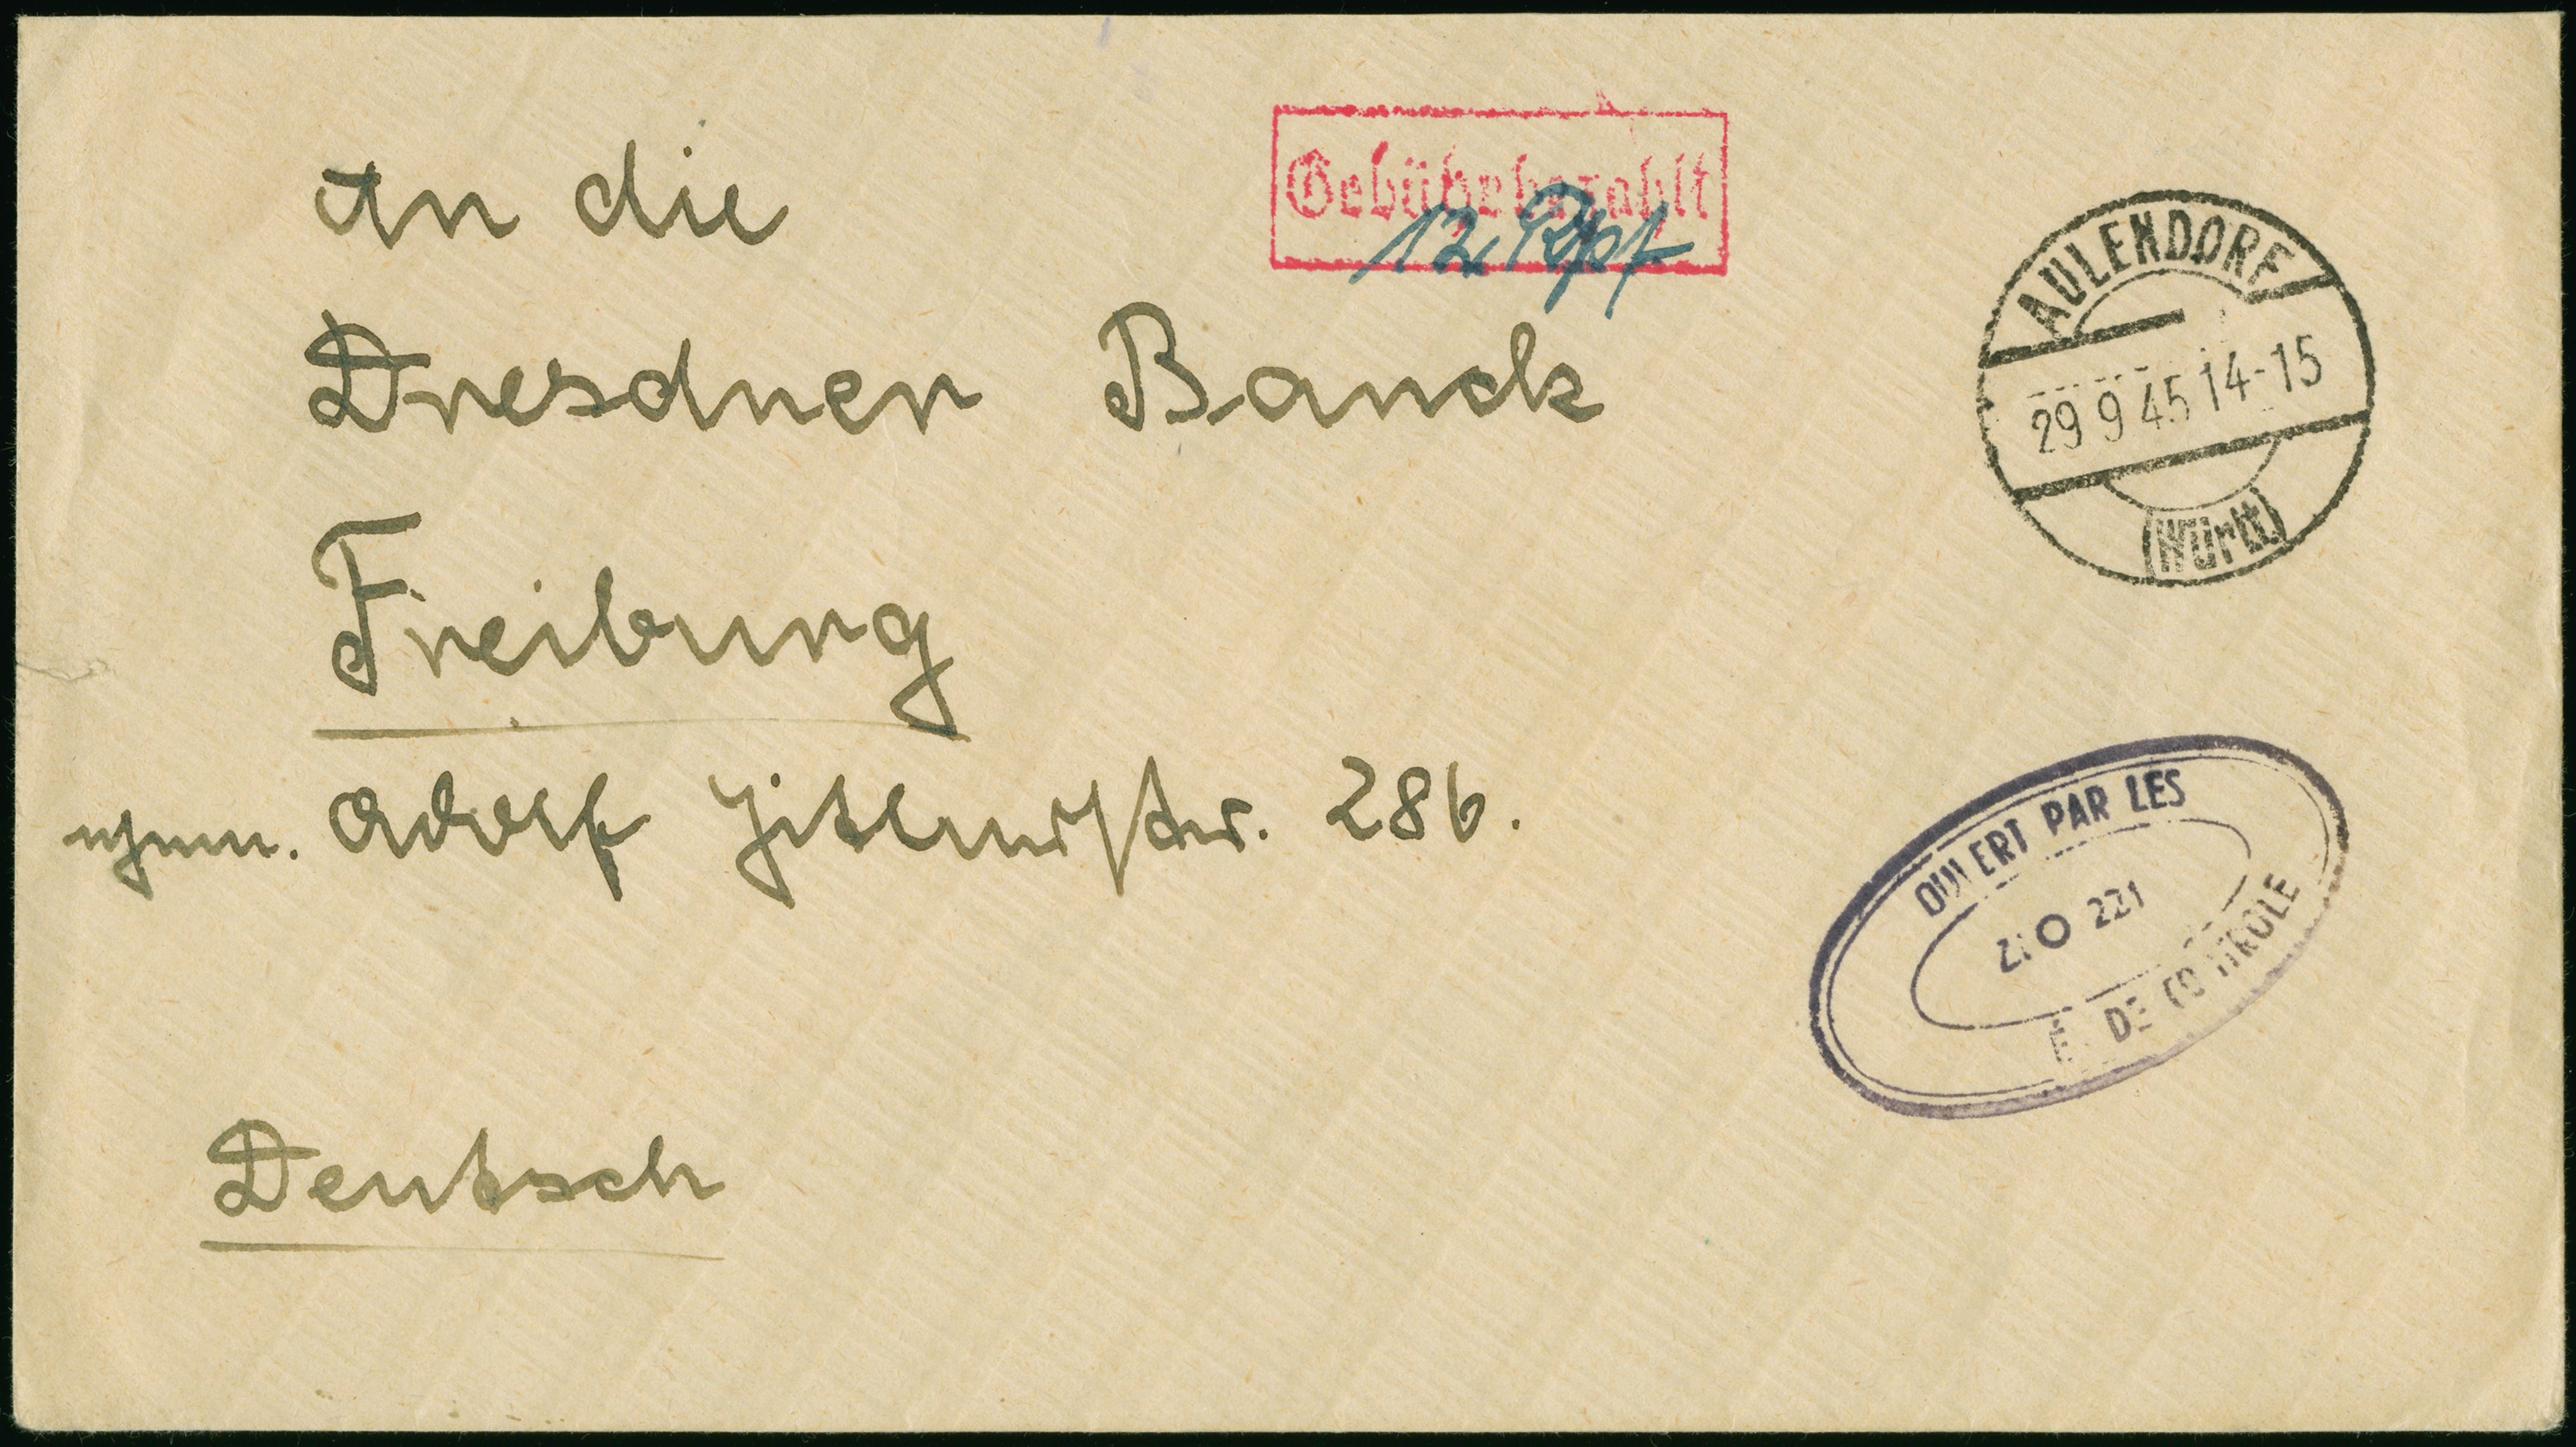 An die
Gebühr bezahlt
12 Rpf
Dresdner Banck
Freiburg
ehem. Adolf Hitlerstr. 286.
Deutsch
AULENDORF
29 9 45 14-15
(Württ)
OUVERT PAR LES
221
DE CONTROLE